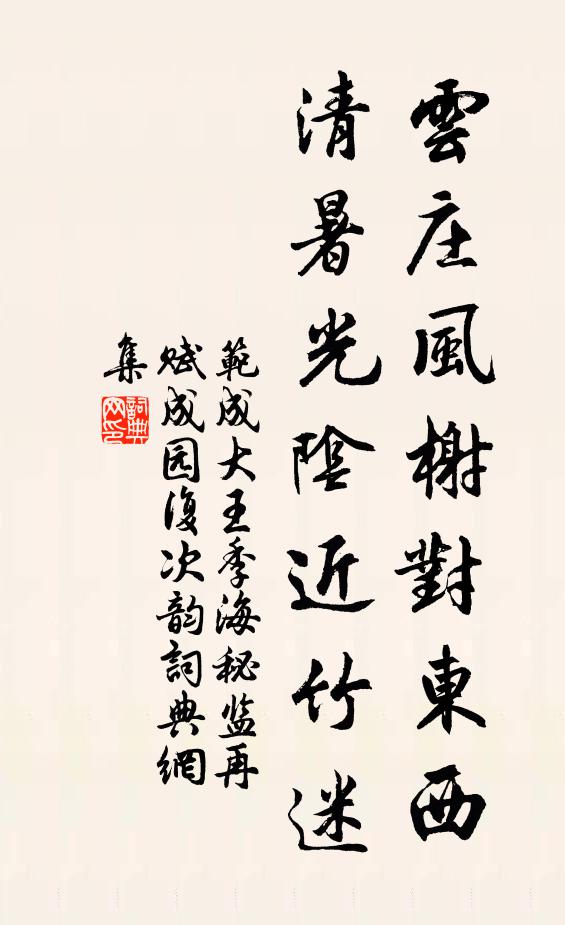 雲庄風榭對東西
清暑光陰近竹迷
範成大王季海秘监再
赋成园復次韵詞典網
集
詞典
网印